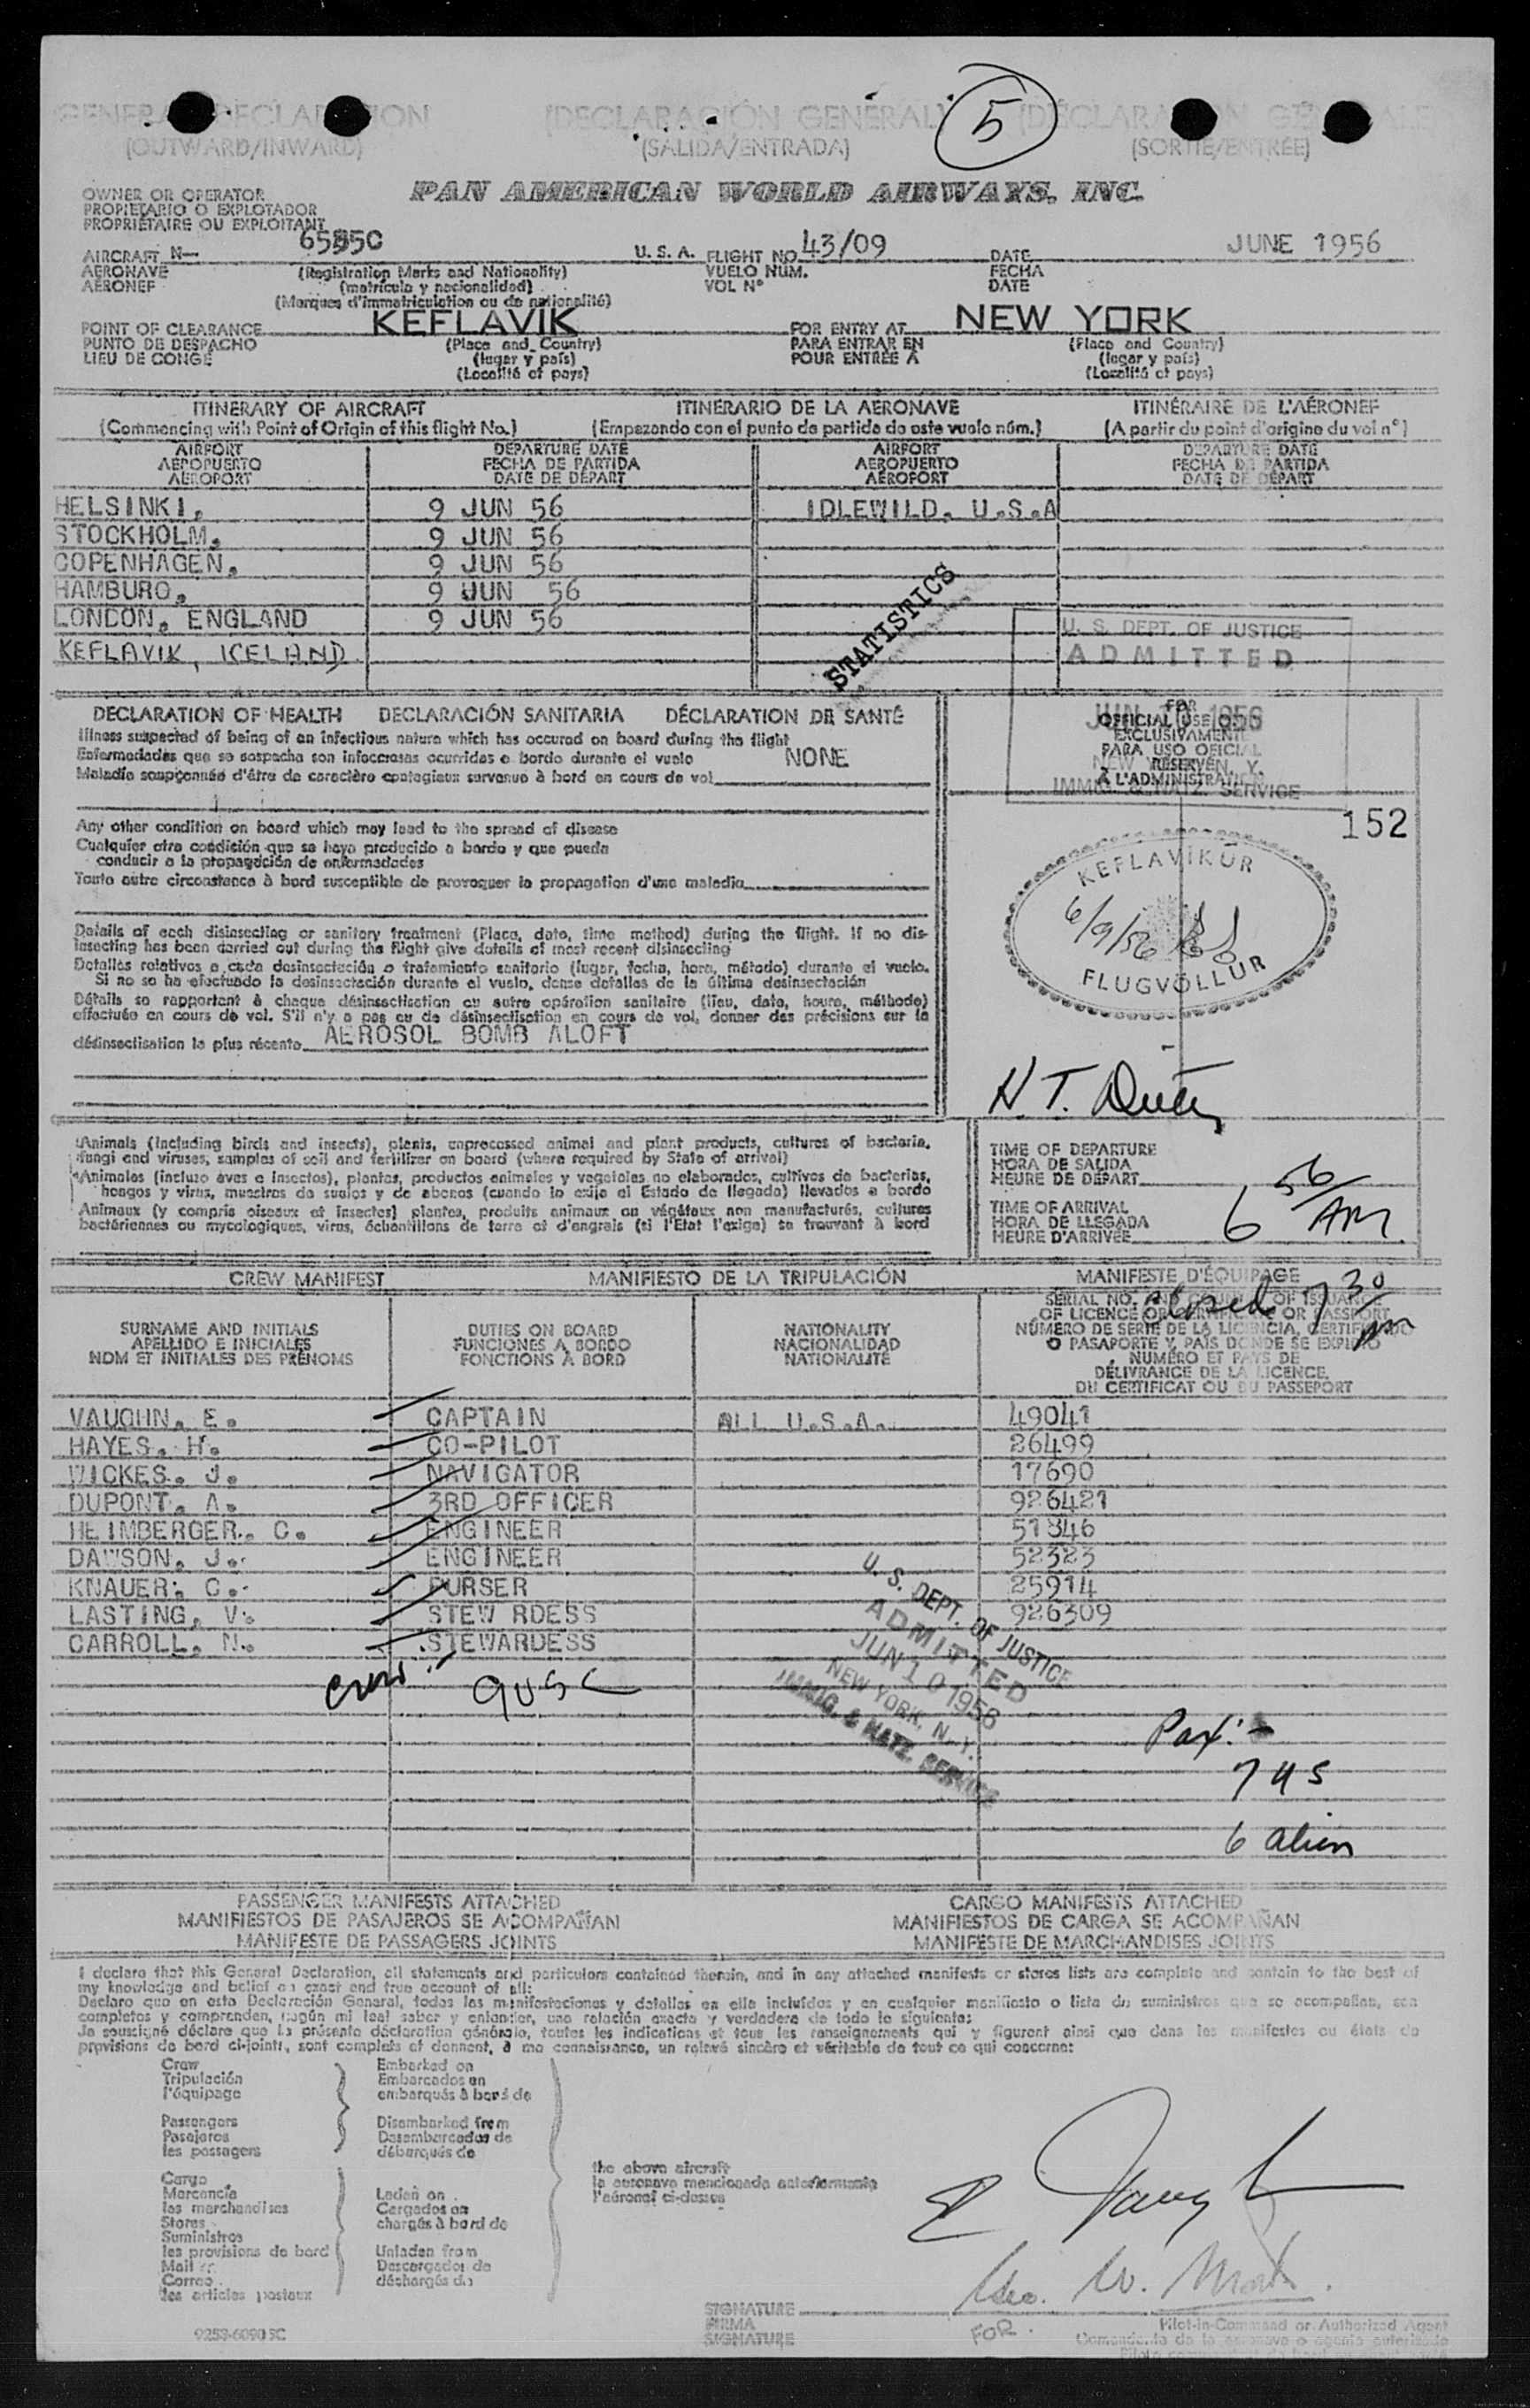 GENERAL DECLARATION (DECLARACIÓN GENERAL) (DÉCLARATION GÉNÉRALE)
(OUTWARD/INWARD) (SALIDA/ENTRADA) (SORTIE/ENTRÉE)
5
PAN AMERICAN WORLD AIRWAYS, INC.
OWNER OR OPERATOR
PROPIETARIO O EXPLOTADOR
PROPRIÉTAIRE OU EXPLOITANT
AIRCRAFT N— U.S.A. FLIGHT NO. 43/09 DATE JUNE 1956
AERONAVE (Registration Marks and Nationality) VUELO NÚM. FECHA
AÉRONEF (matrícula y nacionalidad) VOL N° DATE
(Marques d'immatriculation ou de nationalité)
POINT OF CLEARANCE KEFLAVIK FOR ENTRY AT NEW YORK
PUNTO DE DESPACHO (Place and Country) PARA ENTRAR EN (Place and Country)
LIEU DE CONGÉ (lugar y país) POUR ENTRÉE À (lugar y país)
(Localité et pays) (Localité et pays)
ITINERARY OF AIRCRAFT ITINERARIO DE LA AERONAVE ITINÉRAIRE DE L'AÉRONEF
(Commencing with Point of Origin of this flight No.) (Empezando con el punto de partida de este vuelo núm.) (A partir du point d'origine du vol n°)
AIRPORT DEPARTURE DATE AIRPORT DEPARTURE DATE
AEROPUERTO FECHA DE PARTIDA AEROPUERTO FECHA DE PARTIDA
AÉROPORT DATE DE DÉPART AÉROPORT DATE DE DÉPART
HELSINKI, 9 JUN 56 IDLEWILD, U.S.A
STOCKHOLM, 9 JUN 56
COPENHAGEN, 9 JUN 56
HAMBURG, 9 JUN 56
LONDON, ENGLAND 9 JUN 56
KEFLAVIK, ICELAND
STATISTICS
U. S. DEPT. OF JUSTICE
ADMITTED
JUN 1956
NEW YORK, N. Y.
IMMIG. & NATZ. SERVICE
DECLARATION OF HEALTH DECLARACIÓN SANITARIA DÉCLARATION DE SANTÉ
Illness suspected of being of an infectious nature which has occured on board during the flight
Enfermedades que se sospecha son infecciosas ocurridas a bordo durante el vuelo NONE
Maladie soupçonnée d'être de caractère contagieux survenue à bord en cours de vol
FOR
OFFICIAL USE ONLY
EXCLUSIVAMENTE
PARA USO OFICIAL
RÉSERVÉ
À L'ADMINISTRATION
152
Any other condition on board which may lead to the spread of disease
Cualquier otra condición que se haya producido a bordo y que pueda
conducir a la propagación de enfermedades
Toute autre circonstance à bord susceptible de provoquer la propagation d'une maladie
KEFLAVÍKUR
6/9/56
FLUGVÖLLUR
Details of each disinsecting or sanitary treatment (Place, date, time method) during the flight. If no dis-
insecting has been carried out during the flight give details of most recent disinsecting
Detalles relativos a cada desinsectación o tratamiento sanitario (lugar, fecha, hora, método) durante el vuelo.
Si no se ha efectuado la desinsectación durante el vuelo, dense detalles de la última desinsectación
Détails se rapportant à chaque désinsectisation ou autre opération sanitaire (lieu, date, heure, méthode)
effectuée en cours de vol. S'il n'y a pas eu de désinsectisation en cours de vol, donner des précisions sur la
désinsectisation la plus récente AEROSOL BOMB ALOFT
Animals (including birds and insects), plants, unprocessed animal and plant products, cultures of bacteria,
fungi and viruses, samples of soil and fertilizer on board (where required by State of arrival)
Animales (incluso aves e insectos), plantas, productos animales y vegetales no elaborados, cultivos de bacterias,
hongos y virus, muestras de suelos y de abonos (cuando lo exija el Estado de llegada) llevados a bordo
Animaux (y compris oiseaux et insectes) plantes, produits animaux ou végétaux non manufacturés, cultures
bactériennes ou mycologiques, virus, échantillons de terre et d'engrais (si l'Etat l'exige) se trouvant à bord
TIME OF DEPARTURE
HORA DE SALIDA
HEURE DE DÉPART
TIME OF ARRIVAL
HORA DE LLEGADA 6 56/AM
HEURE D'ARRIVÉE
CREW MANIFEST MANIFIESTO DE LA TRIPULACIÓN MANIFESTE D'ÉQUIPAGE
closed 7 30
SURNAME AND INITIALS DUTIES ON BOARD NATIONALITY SERIAL NO. AND COUNTRY OF ISSUANCE
APELLIDO E INICIALES FUNCIONES A BORDO NACIONALIDAD OF LICENCE OR CERTIFICATE OR PASSPORT
NOM ET INITIALES DES PRÉNOMS FONCTIONS À BORD NATIONALITÉ NÚMERO DE SERIE DE LA LICENCIA, CERTIFICADO
O PASAPORTE Y PAÍS DONDE SE EXPIDIÓ
NUMÉRO ET PAYS DE
DÉLIVRANCE DE LA LICENCE,
DU CERTIFICAT OU DU PASSEPORT
VAUGHN, E. CAPTAIN ALL U.S.A. 49041
HAYES, H. CO-PILOT 26499
WICKES, J. NAVIGATOR 17690
DUPONT, A. 3RD OFFICER 926421
HEIMBERGER, C. ENGINEER 51846
DAWSON, J. ENGINEER 52323
KNAUER, C. PURSER 25914
LASTING, V. STEW RDESS 926309
CARROLL, N. STEWARDESS
Crew:- 9 USC
U. S. DEPT. OF JUSTICE
ADMITTED
JUN 10 1956
NEW YORK, N. Y.
IMMIG. & NATZ. SERVICE
Pax:-
7 US
6 alien
PASSENGER MANIFESTS ATTACHED CARGO MANIFESTS ATTACHED
MANIFIESTOS DE PASAJEROS SE ACOMPAÑAN MANIFIESTOS DE CARGA SE ACOMPAÑAN
MANIFESTE DE PASSAGERS JOINTS MANIFESTE DE MARCHANDISES JOINTS
I declare that this General Declaration, all statements and particulars contained therein, and in any attached manifests or stores lists are complete and contain to the best of
my knowledge and belief an exact and true account of all:
Declaro que en esta Declaración General, todas las manifestaciones y detalles en ella incluídos y en cualquier manifiesto o lista de suministros que se acompañan, son
completos y comprenden, según mi leal saber y entender, una relación exacta y verdadera de todo lo siguiente:
Je soussigné déclare que la présente déclaration générale, toutes les indications et tous les renseignements qui y figurent ainsi que dans les manifestes ou états de
provisions de bord ci-joints, sont complets et donnent, à ma connaissance, un relevé sincère et véritable de tout ce qui concerne:
Crew Embarked on
Tripulación Embarcados en
l'équipage embarqués à bord de
Passengers Disembarked from
Pasajeros Desembarcados de
les passagers débarqués de
the above aircraft
la aeronave mencionada anteriormente
l'aéronef ci-dessus
Cargo
Mercancía Laden on
les marchandises Cargados en
Stores chargés à bord de
Suministros
les provisions de bord Unladen from
Mail Descargados de
Correo déchargés de
les articles postaux
E Vaughn
Geo. W.
SIGNATURE
FIRMA FOR. Pilot-in-Command or Authorized Agent
SIGNATURE Comandante de la aeronave o agente autorizado